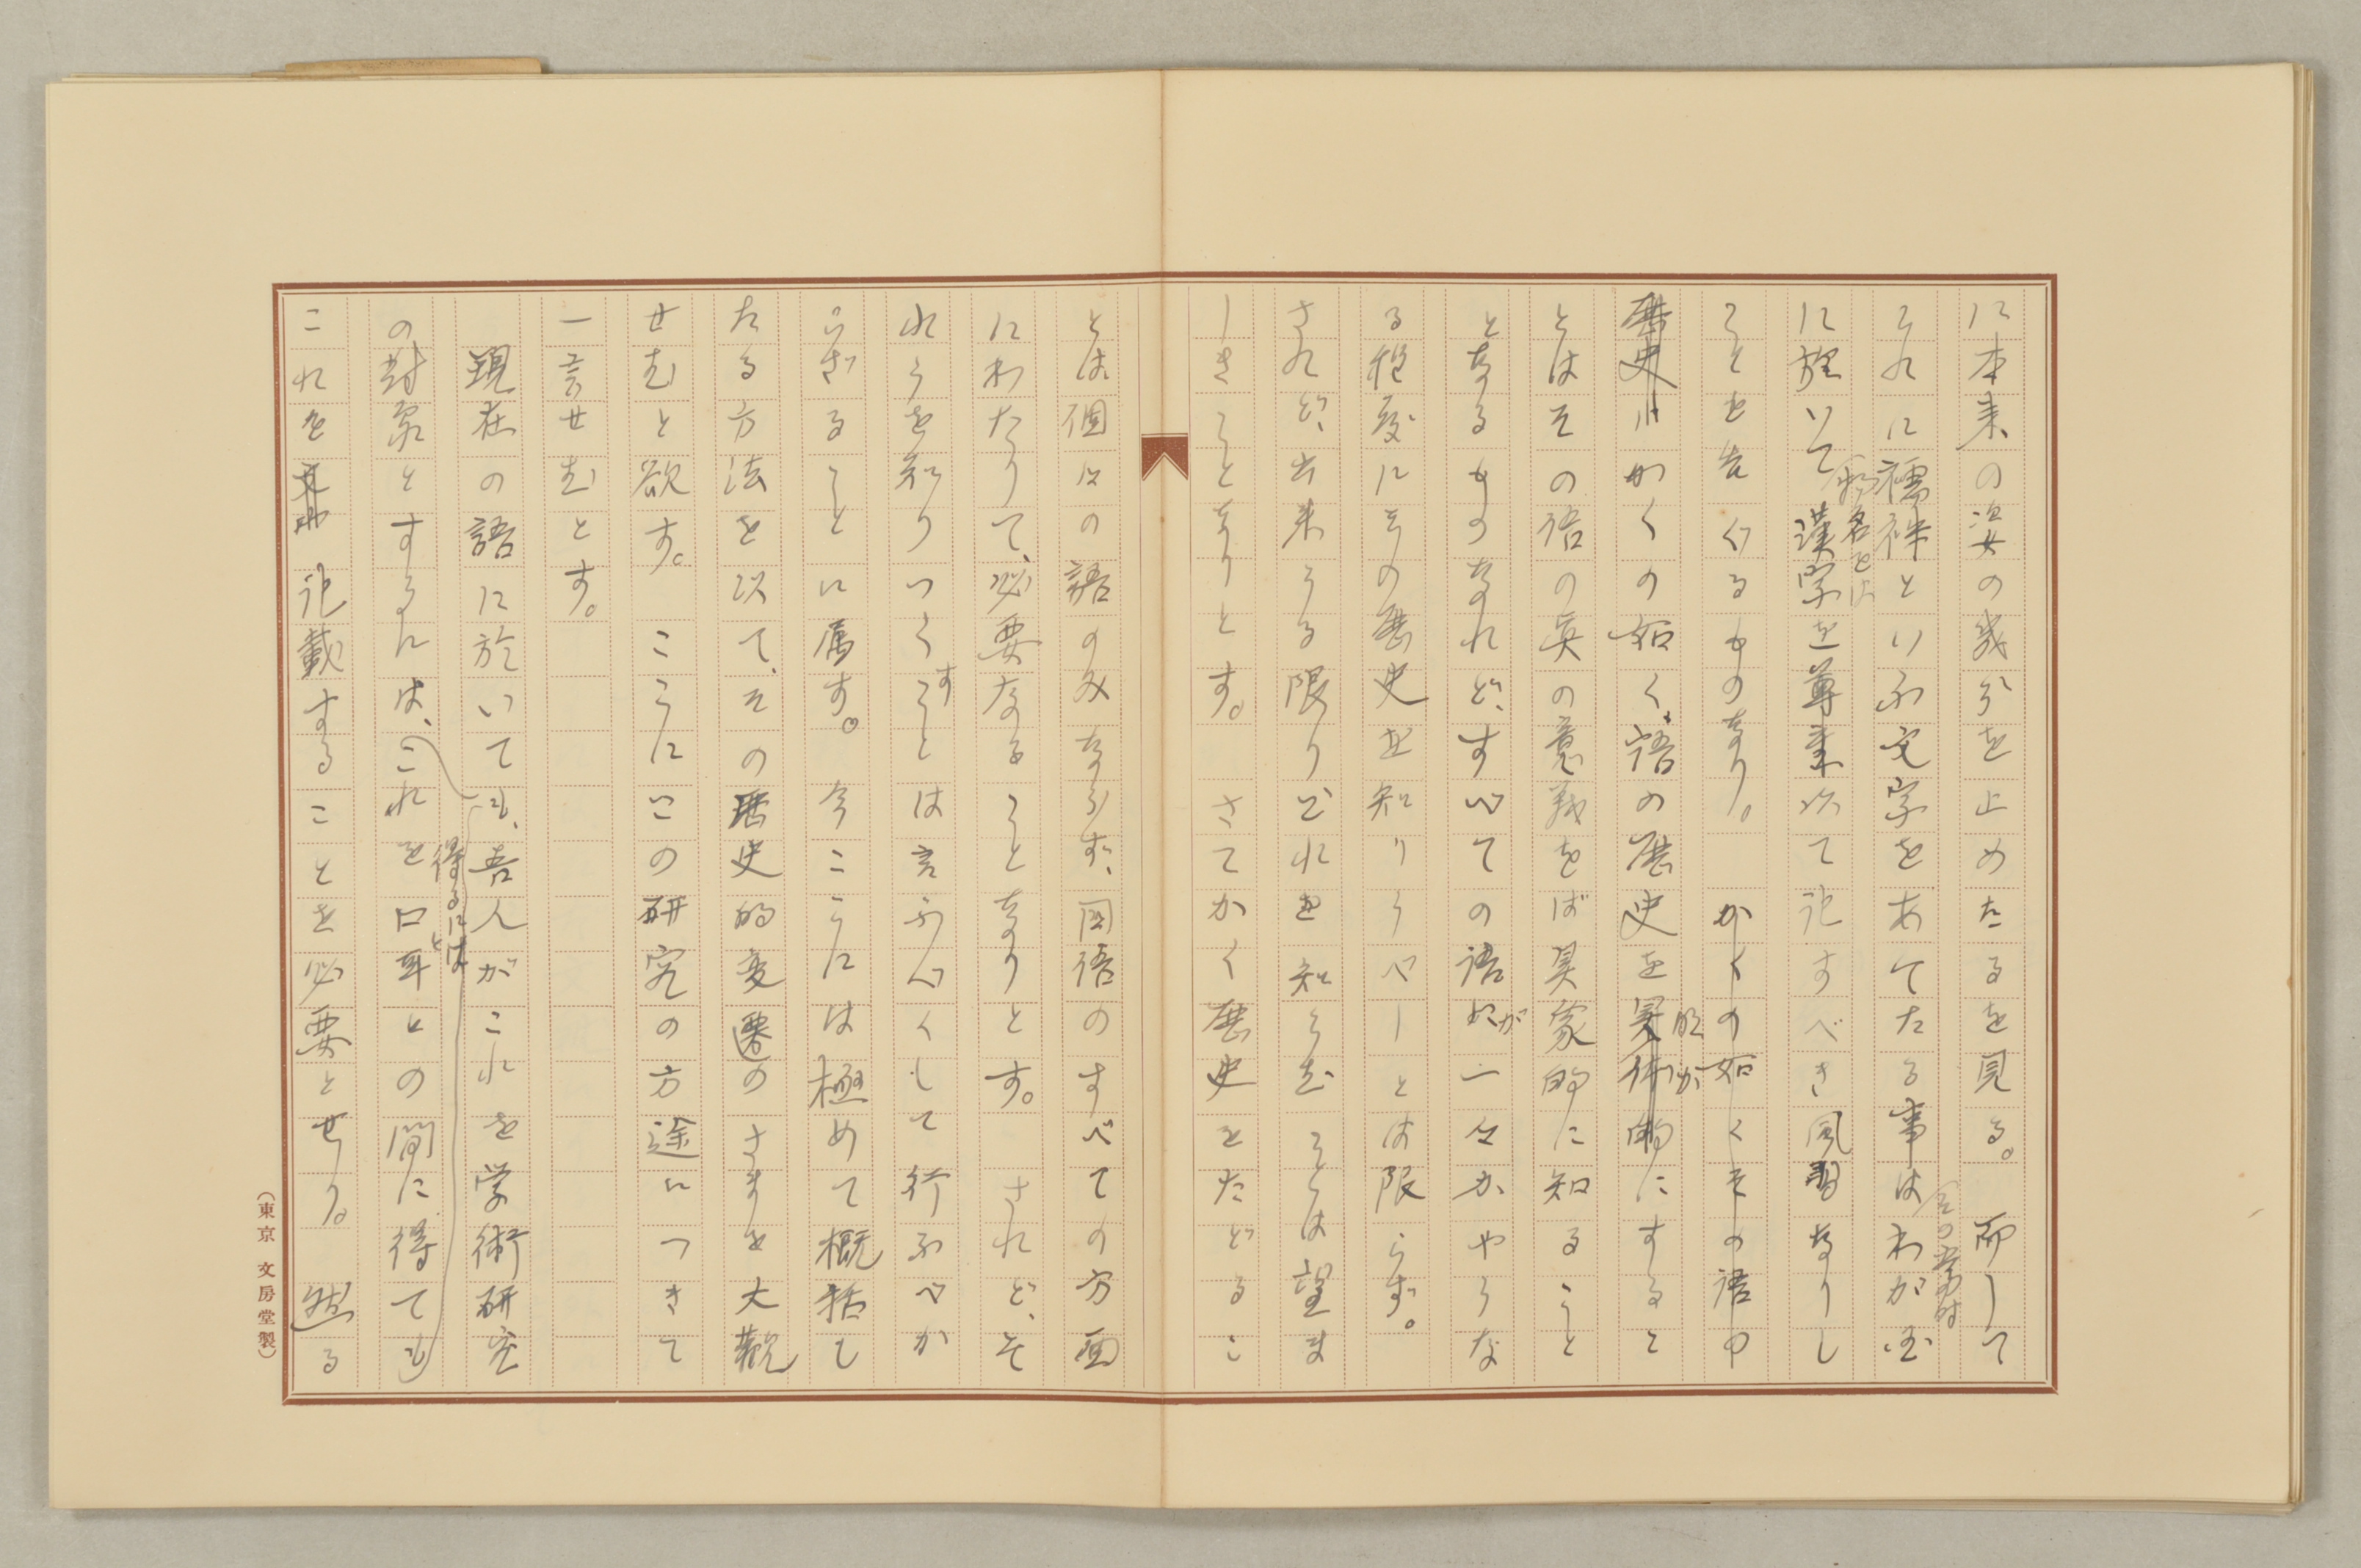 に本来の姿の幾分を止めたるを見る。而して
それに襦袢といふ文字をあてたる事はわが国
その当時
に於いて漢字を尊重し以て記すべき風習なりし
ことを告ぐるものなり。かくの如くその語の
歴史はかくの如く、語の歴史を明かにするこ
とはその語の真の意義をば具象的に知ること
となるものなれど、すべての語が一々かやうな
る程度にその歴史を知りうべしとは限らず。
されど、出来うる限りこれを知らむことは望ま
しきことなりとす。さてかく歴史をたどるこ
とは個々の語のみならず、国語のすべての方面
にわたりて、必要なることなりとす。されど、そ
れらを知りつくすことは言ふべくして行ふべか
らざることに属す。今ここには極めて概括し
たる方法を以て、その歴史的変遷のさまを大観
せむと欲す。ここにこの研究の方途につきて
一言せむとす。
現在の語に於いても、吾人がこれを学術研究
の対象とするには、これを口耳との間に得ても
得るには
これを記載することを必要とせり。然る
(東京 文房堂製)